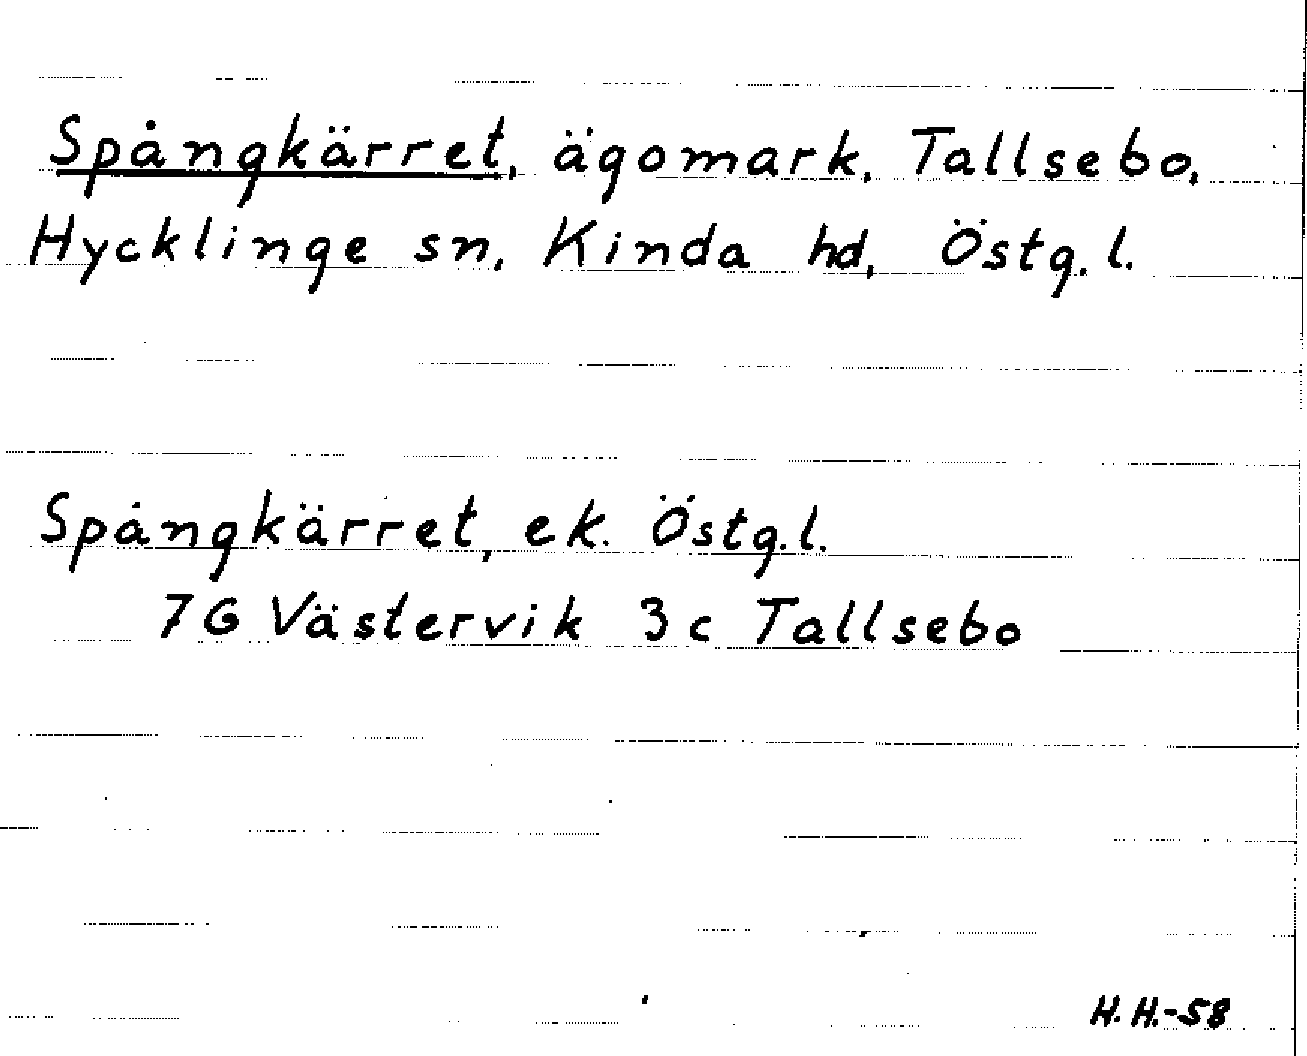 Spångkärret, ägomark, Tallsebo,
Hycklinge sn, Kinda hd, Östg. l.
Spångkärret, ek. Östg. l.
7G Västervik 3c Tallsebo
H. H.-58